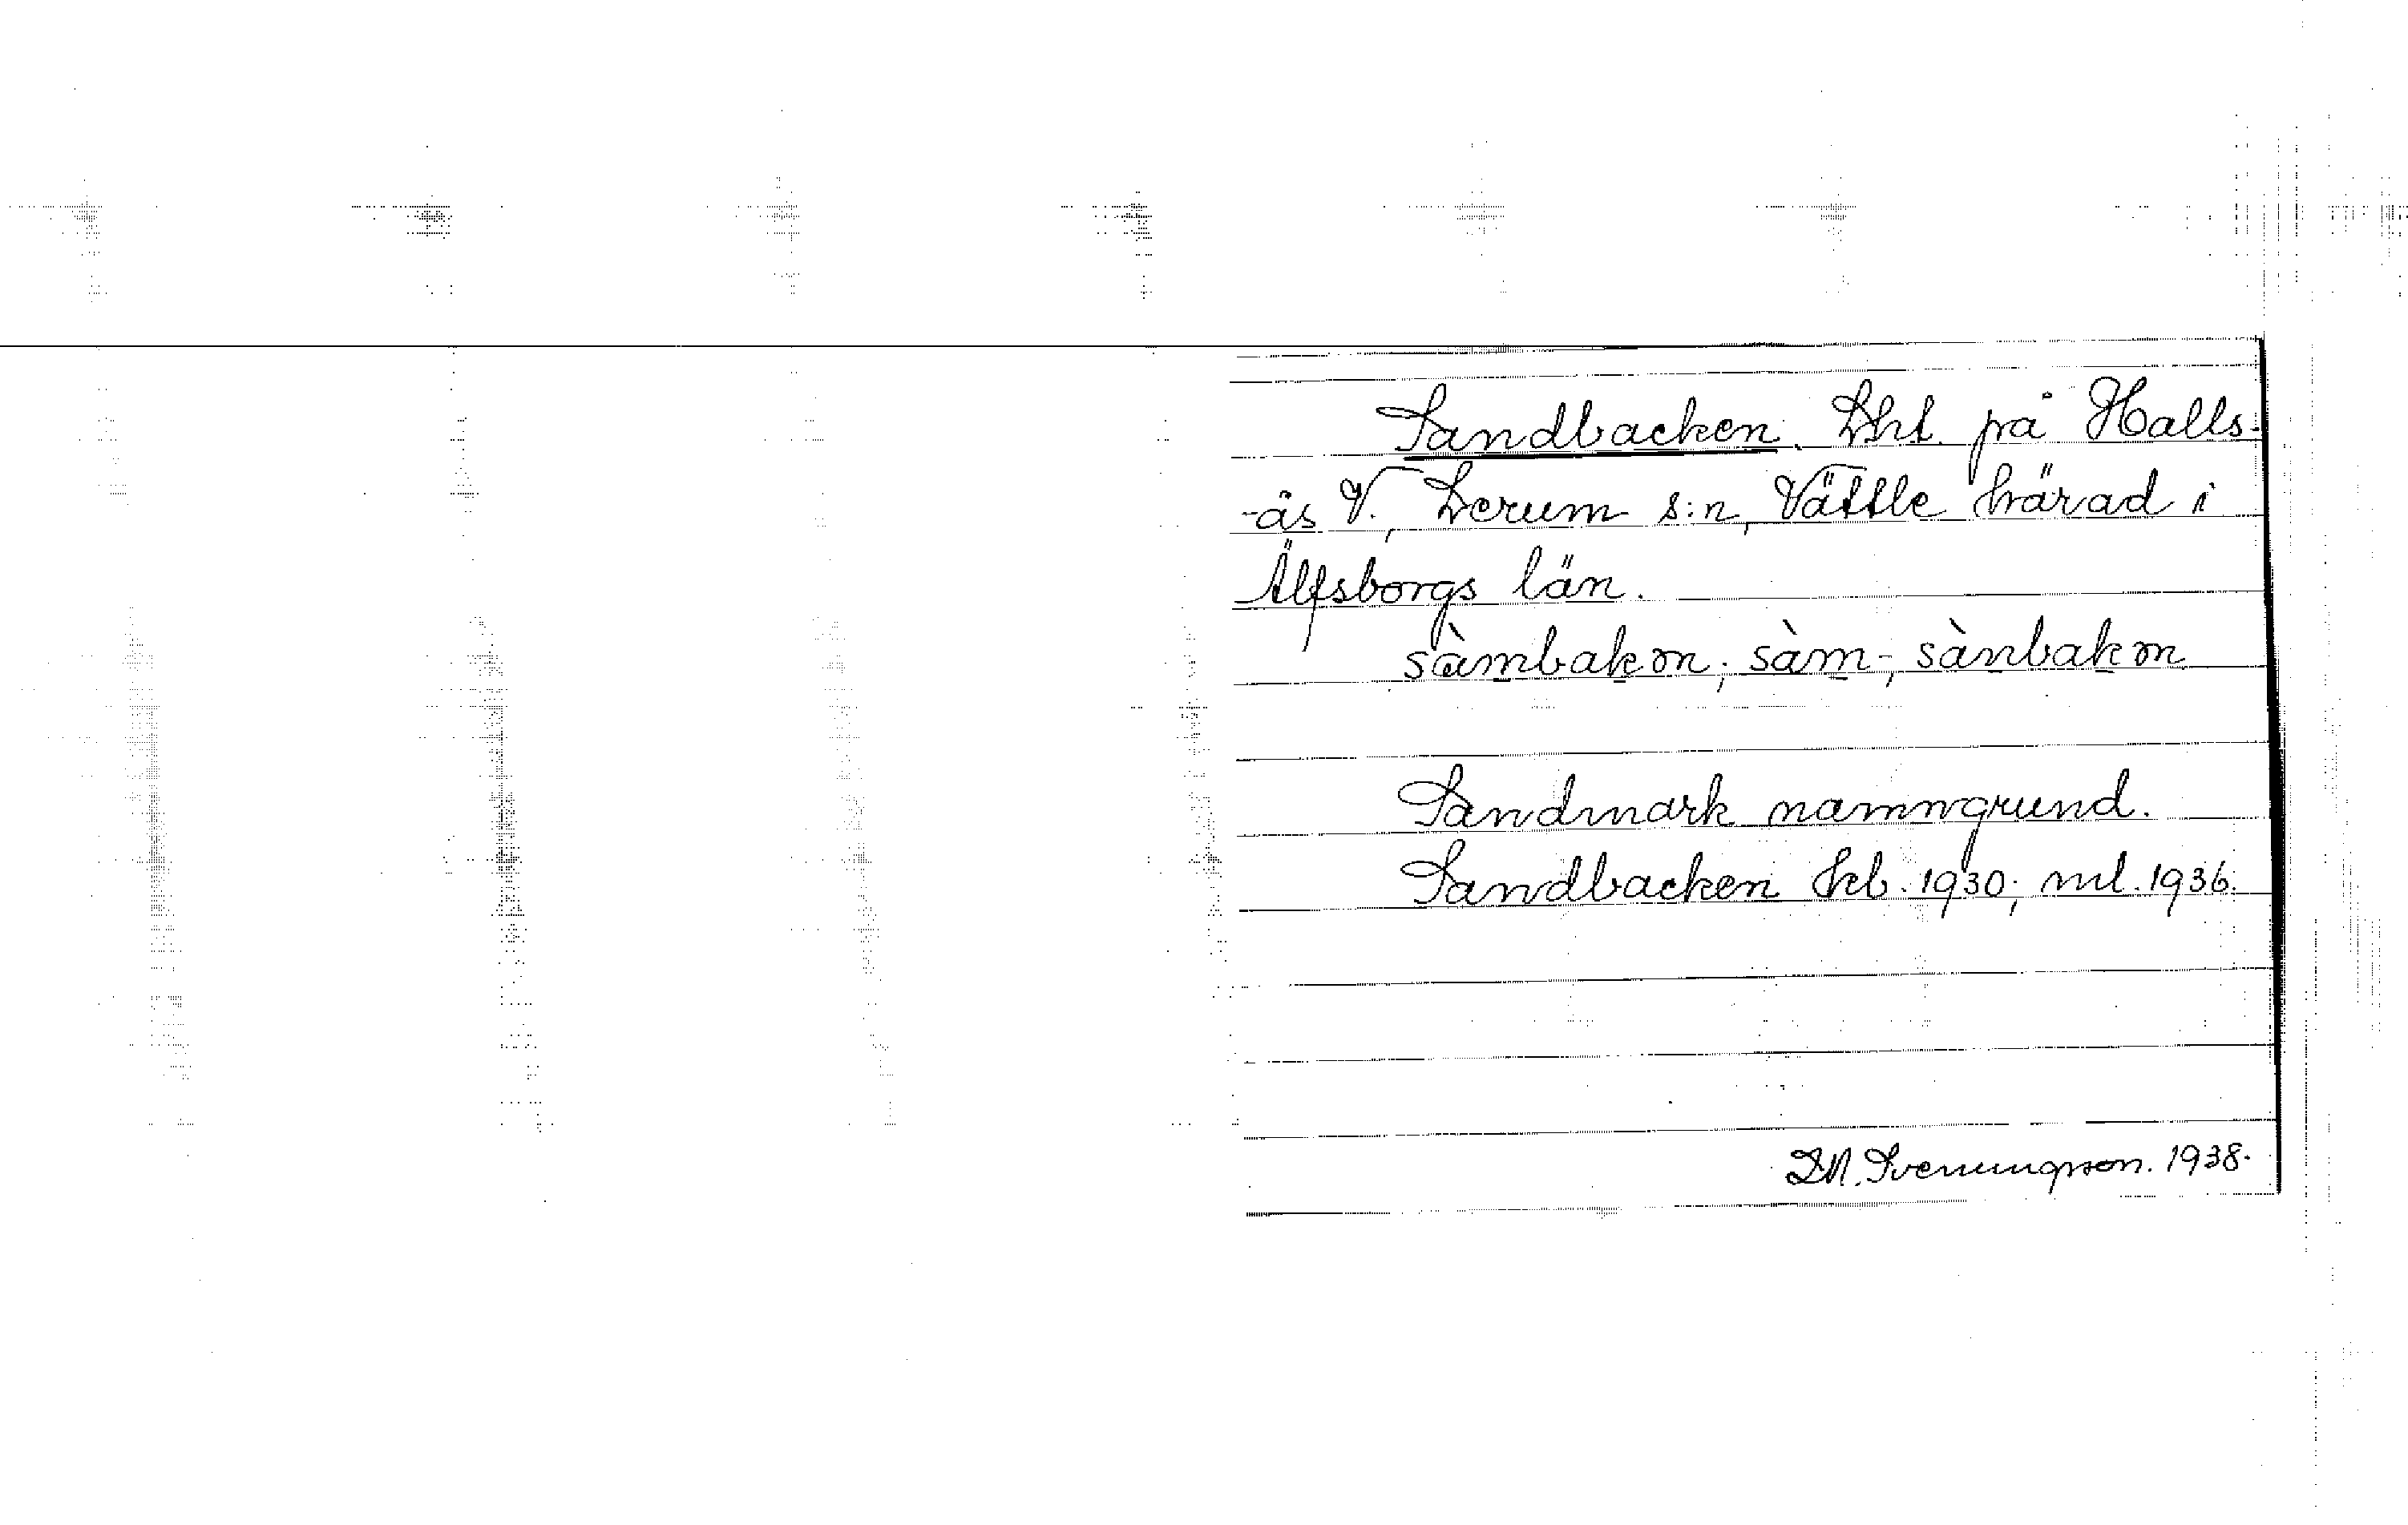 Sandbacken. Lht. på Halls-
-ås V., Lerum s:n, Vättle härad i
Älfsborgs län.
sàmbakən; sàm-, sànbakən
Sandmark namngrund.
Sandbacken hcb. 1930; ml. 1936.
D.N. Svenungsson. 1938.